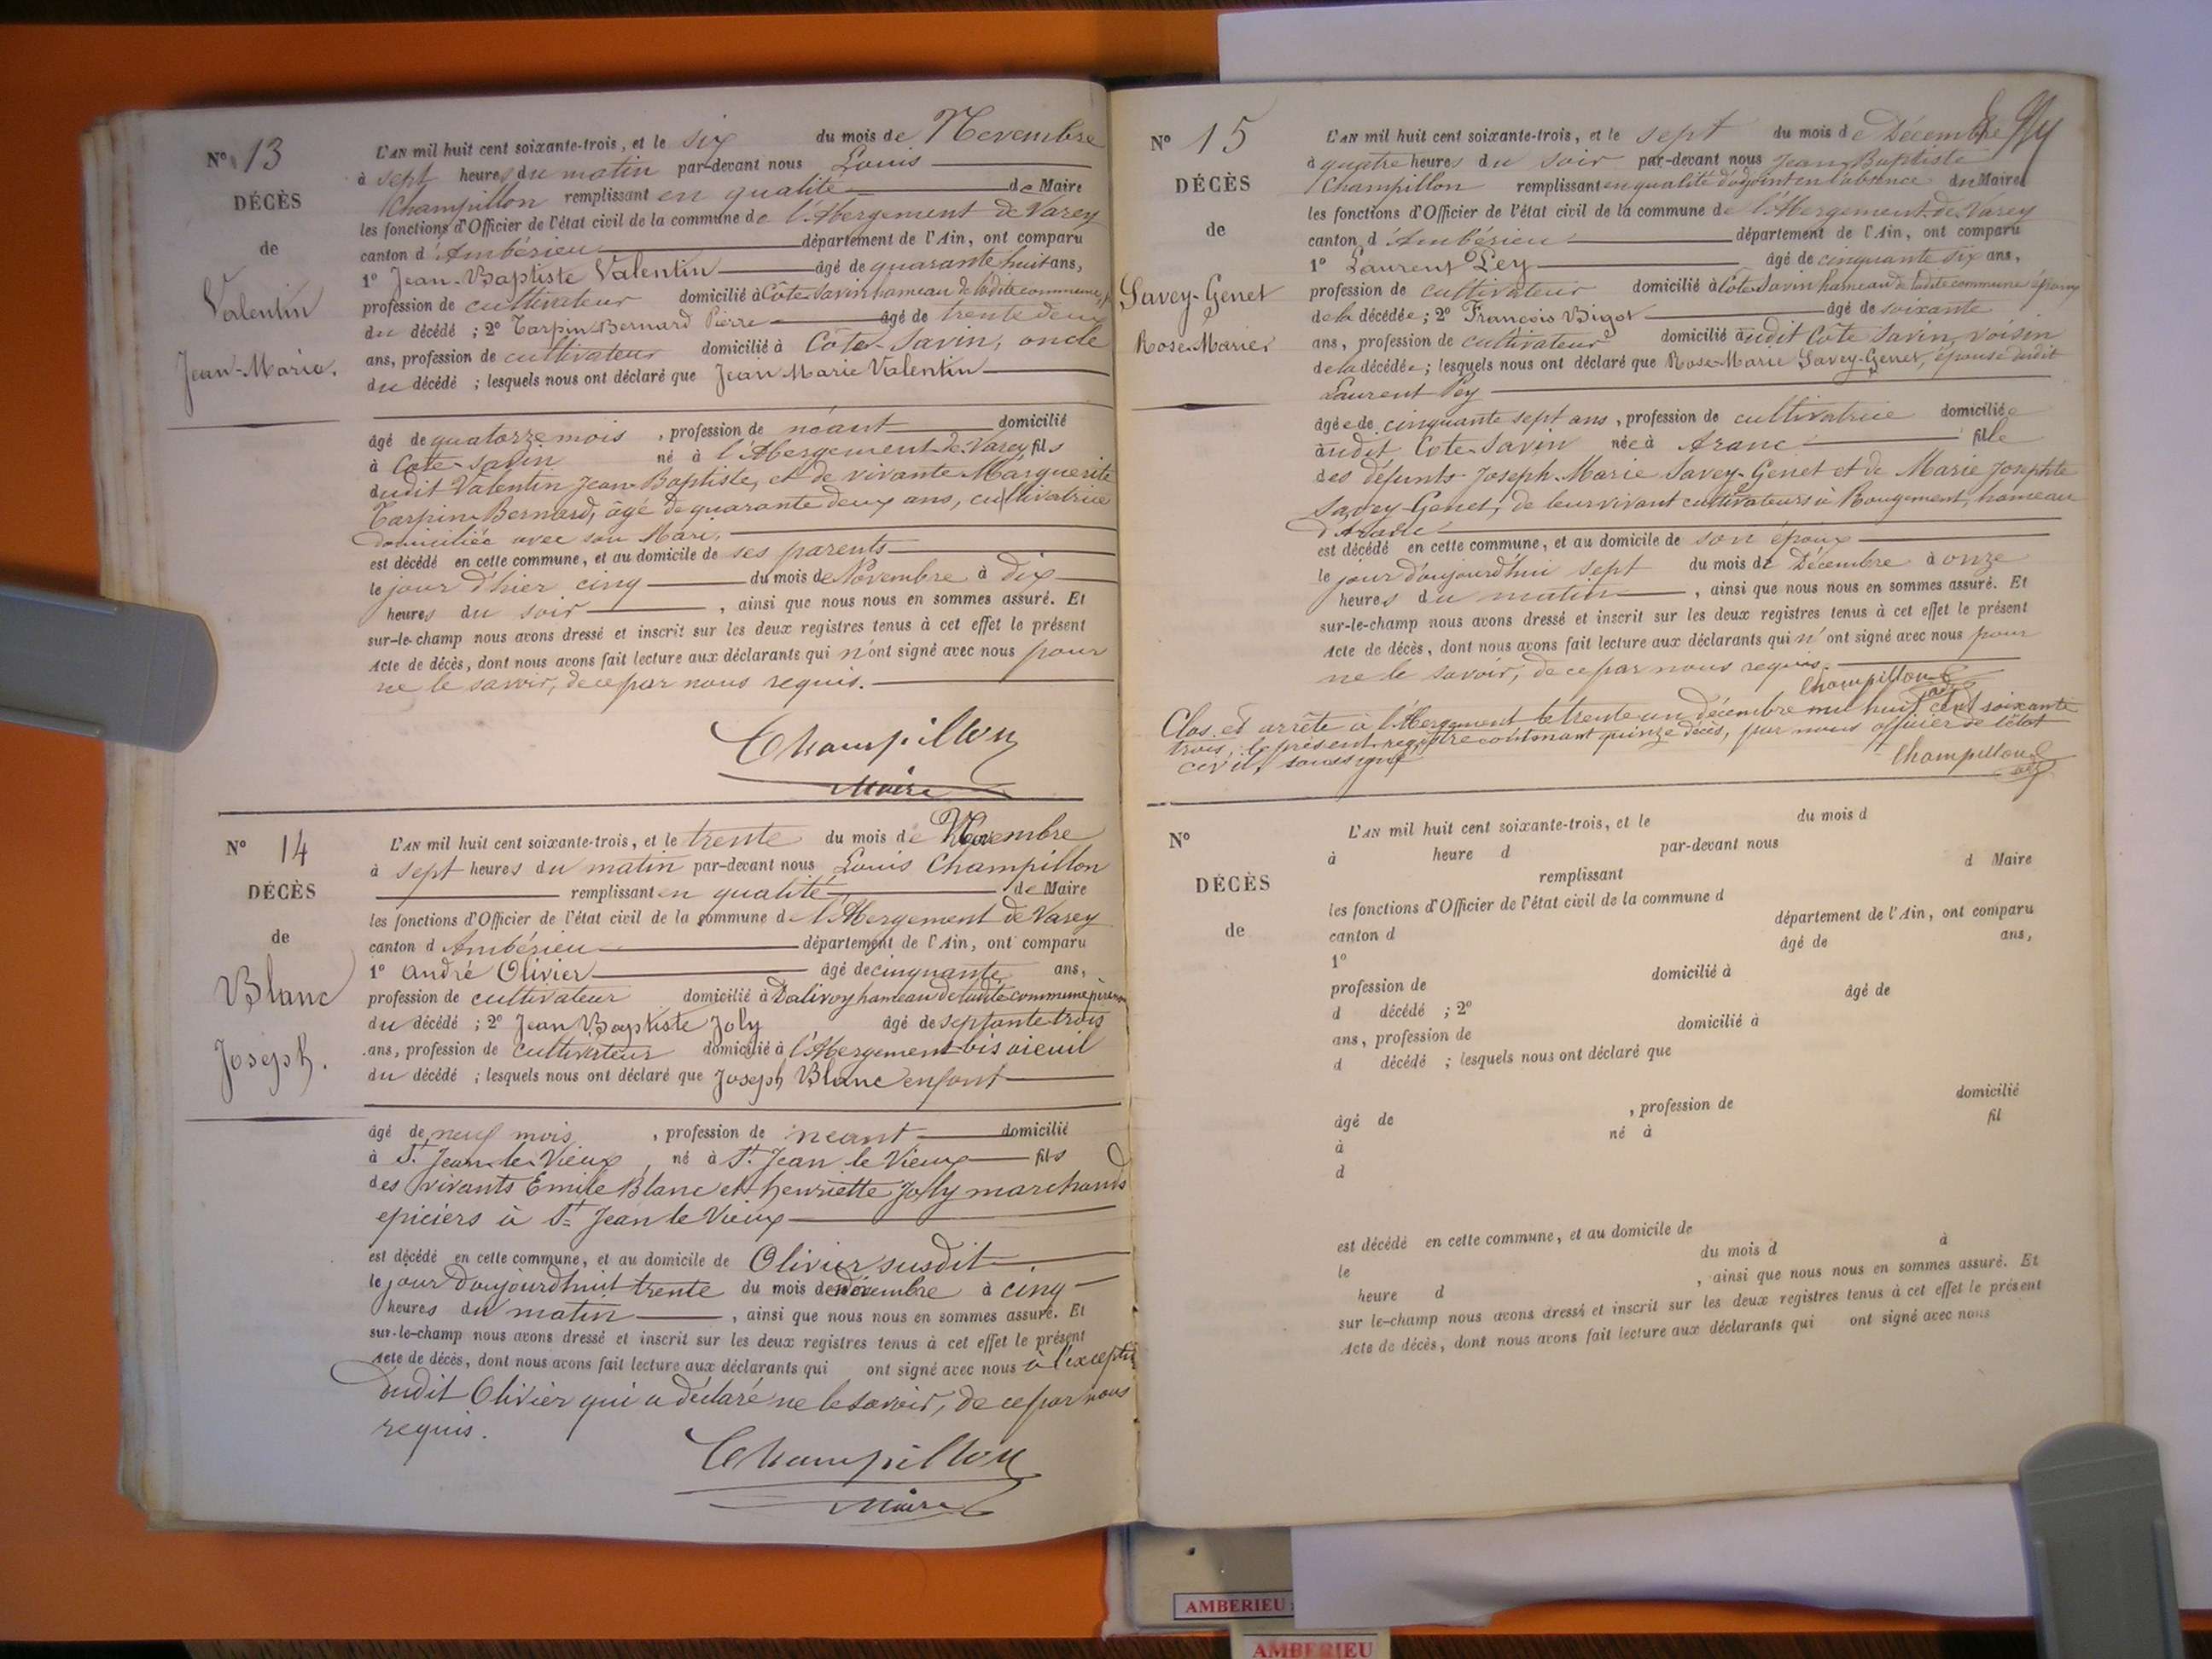 N° 13
DÉCÈS
de
Valentin
Jean-Marie.
L'AN mil huit cent soixante-trois, et le six du mois de Novembre
à sept heures du matin par-devant nous Louis
Champillon remplissant en qualité de Maire
les fonctions d'Officier de l'état civil de la commune de l'Abergement de Varey
canton d'Ambérieu département de l'Ain, ont comparu
1° Jean-Baptiste Valentin âgé de quarante huit ans,
profession de cultivateur domicilié à Côte-Savin hameau de ladite commune,
du décédé ; 2° Tarpin-Bernard Pierre âgé de trente deux
ans, profession de cultivateur domicilié à Côte-Savin, oncle
du décédé ; lesquels nous ont déclaré que Jean Marie Valentin
âgé de quatorze mois , profession de néant domicilié
à Côte-Savin né à l'Abergement-de-Varey fils
dudit Valentin Jean-Baptiste, et de vivante Marguerite
Tarpin-Bernard, âgé de quarante deux ans, cultivatrice
domiciliée avec son Mari.
est décédé en cette commune, et au domicile de ses parents
le jour d'hier cinq du mois de Novembre à dix
heures du soir , ainsi que nous nous en sommes assuré. Et
sur-le-champ nous avons dressé et inscrit sur les deux registres tenus à cet effet le présent
Acte de décès, dont nous avons fait lecture aux déclarants qui n'ont signé avec nous pour
ne le savoir, de ce par nous requis.
Champillon
Maire
N° 14
DÉCÈS
de
Blanc
Joseph.
L'AN mil huit cent soixante-trois, et le trente du mois de Novembre
à sept heures du matin par-devant nous Louis Champillon
remplissant en qualité de Maire
les fonctions d'Officier de l'état civil de la commune de l'Abergement de Varey
canton d'Ambérieu département de l'Ain, ont comparu
1° André Olivier âgé de cinquante ans,
profession de cultivateur domicilié à Dalivoy hameau de ladite commune
du décédé ; 2° Jean Baptiste Joly âgé de septante trois
ans, profession de cultivateur domicilié à l'Abergement bisaieuil
du décédé ; lesquels nous ont déclaré que Joseph Blanc enfant
âgé de neuf mois , profession de néant domicilié
à St. Jean-le-Vieux, né à St. Jean le Vieux fils
des vivants Emile Blanc et henriette Joly marchands
epiciers à St. Jean le Vieux
est décédé en cette commune, et au domicile de Olivier susdit
le jour d'aujourdhuit trente du mois de novembre à cinq
heures du matin , ainsi que nous nous en sommes assuré. Et
sur-le-champ nous avons dressé et inscrit sur les deux registres tenus à cet effet le présent
Acte de décès, dont nous avons fait lecture aux déclarants qui ont signé avec nous à l'exceptio
dudit Olivier qui a déclaré ne le savoir, de ce par nous
requis.
Champillon
Maire
N° 15
DÉCÈS
de
Savey-Genet
Rose-Marie
L'AN mil huit cent soixante-trois, et le sept du mois de Décembre
à quatre heures du soir par-devant nous Jean Baptiste
Champillon remplissant en qualité d'adjoint en l'absence du Maire
les fonctions d'Officier de l'état civil de la commune de l'Abergement-de-Varey
canton d'Ambérieu département de l'Ain, ont comparu
1° Laurent Pey âgé de cinquante six ans,
profession de cultivateur domicilié à Côte Savin hameau de ladite commune époux
de la décédée ; 2° François Bigot âgé de soixante
ans, profession de cultivateur domicilié audit Côte Savin, voisin
de la décédée ; lesquels nous ont déclaré que Rose-Marie Savey-Genet, épouse dudit
Laurent Pey
âgée de cinquante sept ans, profession de cultivatrice domiciliée
audit Côte-Savin née à Aranc fille
des défunts Joseph-Marie Savey-Genet et de Marie Josephte
Savey-Genet, de leur vivant cultivateurs à Rougemont, hameau
d'Aranc
est décédé en cette commune, et au domicile de son époux
le jour d'aujourd'hui sept du mois de Décembre à onze
heures du matin , ainsi que nous nous en sommes assuré. Et
sur-le-champ nous avons dressé et inscrit sur les deux registres tenus à cet effet le présent
Acte de décès, dont nous avons fait lecture aux déclarants qui n'ont signé avec nous pour
ne le savoir, de ce par nous requis.
Champillon
adj
Clos et arrêté à l'Abergement le trente un décembre mil huit cent soixante
trois, le présent registre contenant quinze décès, par nous officier de l'état
civil, soussigné
Champillon
adj
N°
DÉCÈS
de
L'AN mil huit cent soixante-trois, et le du mois d
à heure d par-devant nous
remplissant d Maire
les fonctions d'Officier de l'état civil de la commune d
canton d département de l'Ain, ont comparu
1° âgé de ans,
profession de domicilié à
d décédé ; 2° âgé de
ans, profession de domicilié à
d décédé ; lesquels nous ont déclaré que
âgé de , profession de domicilié
à né à fil
d
est décédé en cette commune, et au domicile de
le du mois d à
heure d , ainsi que nous nous en sommes assuré. Et
sur le-champ nous avons dressé et inscrit sur les deux registres tenus à cet effet le présent
Acte de décès, dont nous avons fait lecture aux déclarants qui ont signé avec nous
AMBERIEU
AMBERIEU